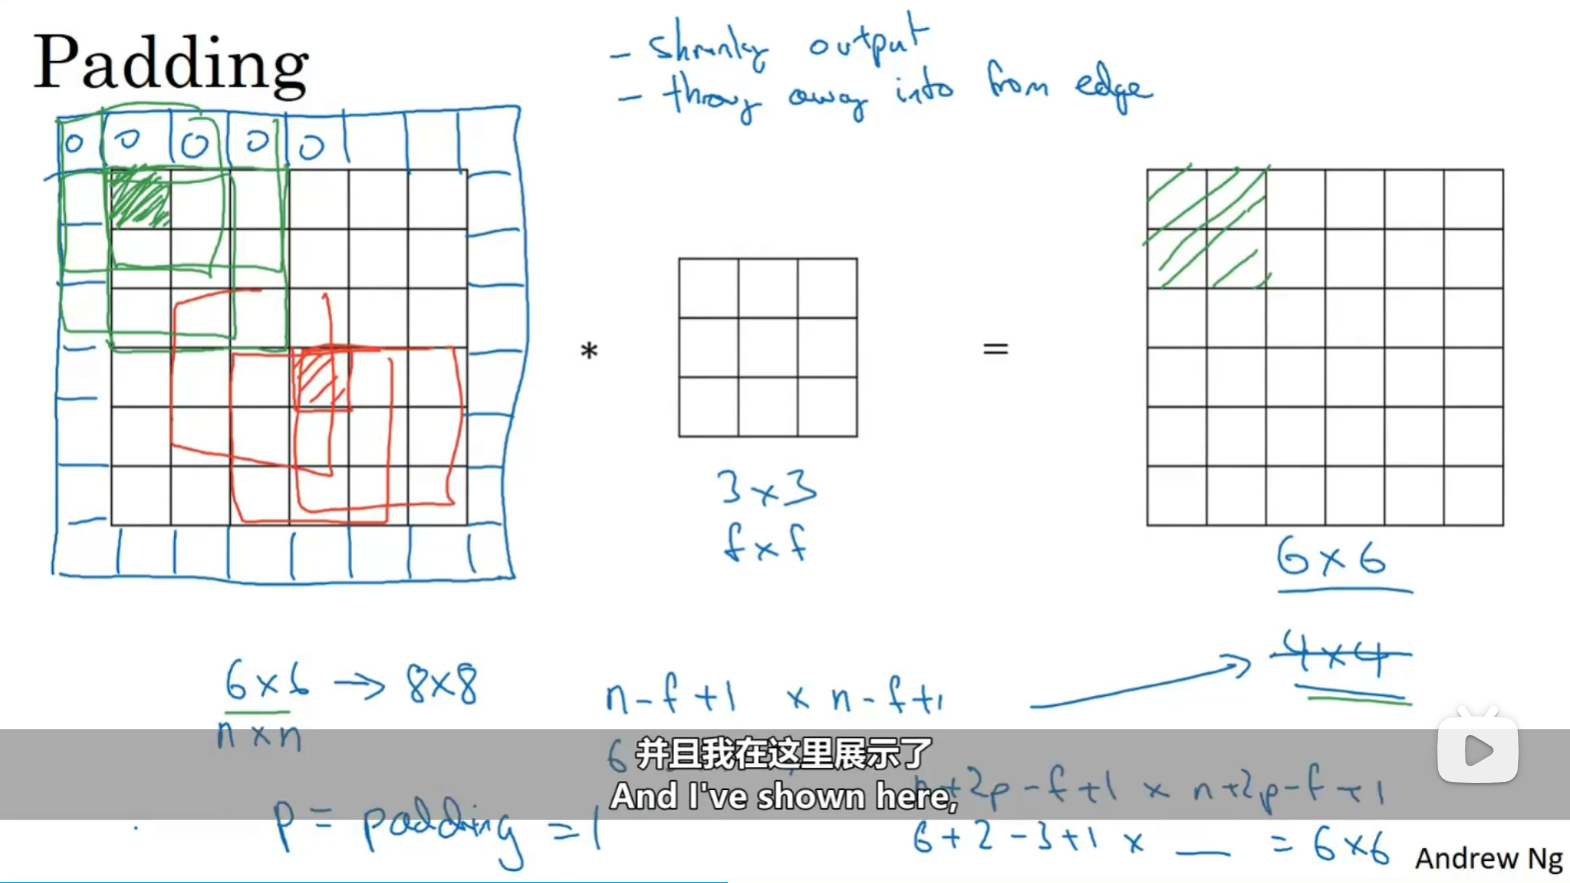 Padding
- shrinky output
- throw away info from edge
0 0 0 0 0
*
=
3 x 3
f x f
6 x 6
4 x 4
6 x 6 → 8 x 8
n x n
n - f + 1 x n - f + 1
6
并且我在这里展示了
And I've shown here,
n + 2p - f + 1 x n + 2p - f + 1
p = padding = 1
6 + 2 - 3 + 1 x __ = 6 x 6
Andrew Ng